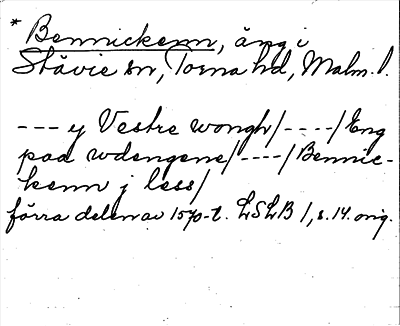 * Bennickenn, äng i
Stävie sn, Torna hd, Malm. l.
--- y Vestre wongh/----/Eng
paa udengene/----/Bennic-
kenn j less/
förra delen av 1570-t. LSLB 1, s. 14. orig.